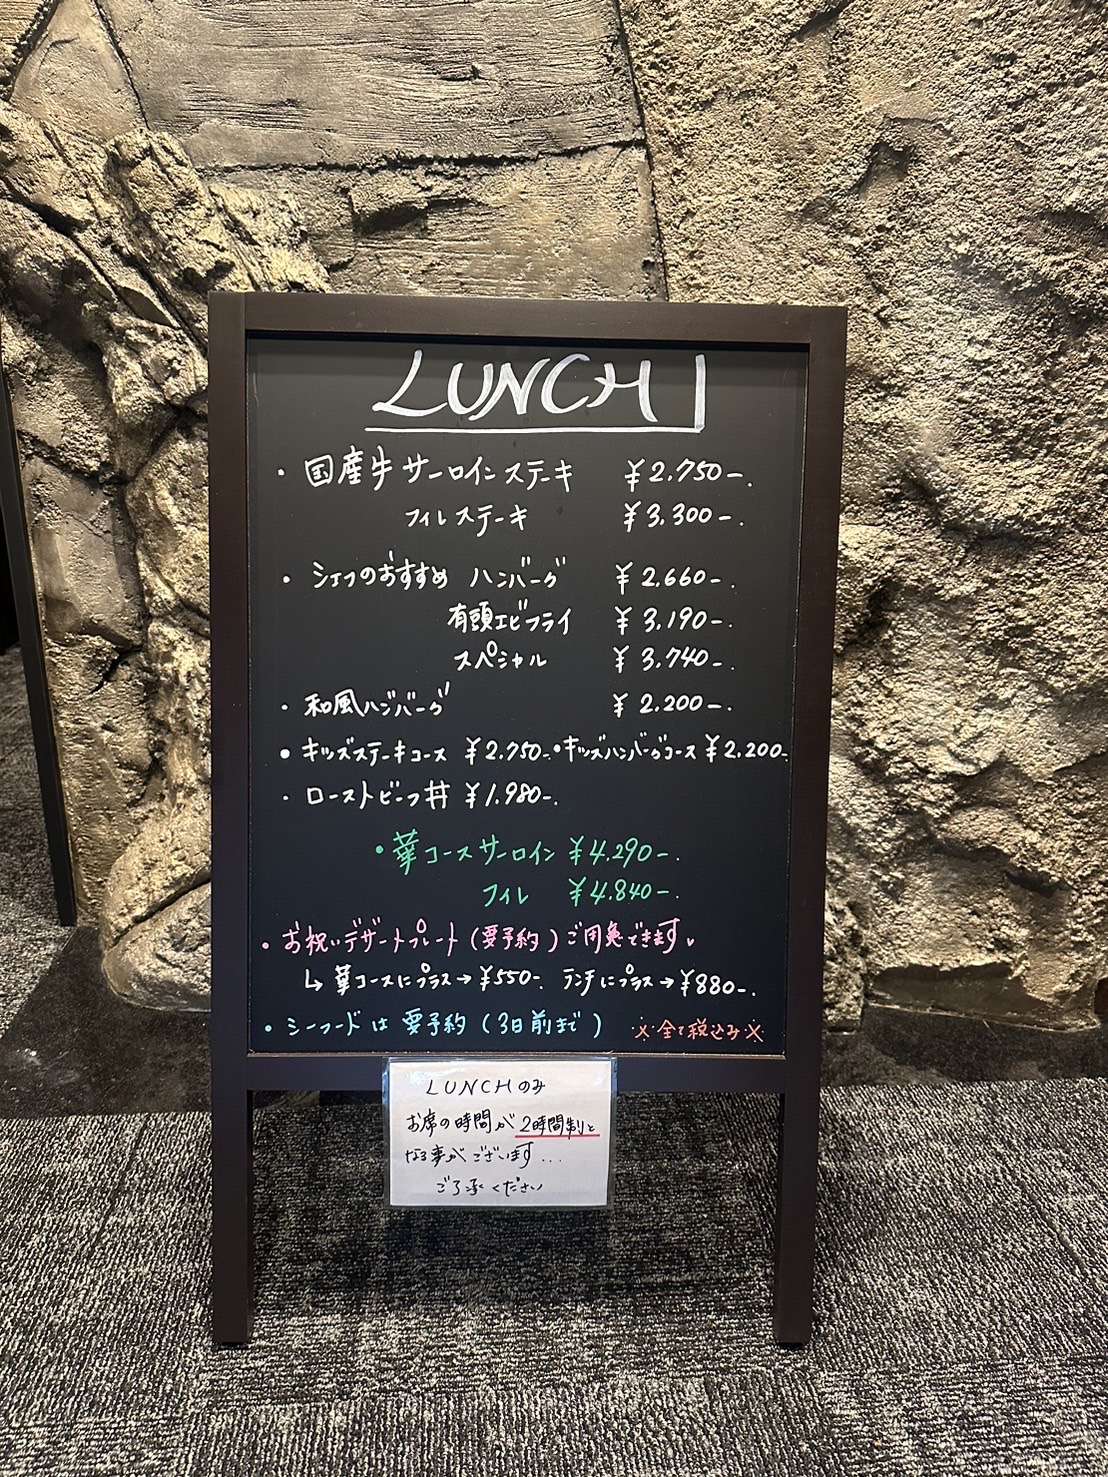 LUNCH
・国産牛サーロインステーキ ¥2.750-.
フィレステーキ ¥3.300-.
・シェフのおすすめ ハンバーグ ¥2.660-.
有頭エビフライ ¥3.190-.
スペシャル ¥3.740-.
・和風ハンバーグ ¥2.200-.
・キッズステーキコース ¥2.750-.・キッズハンバーグコース ¥2.200-
・ローストビーフ丼 ¥1.980-.
・華コースサーロイン ¥4.290-.
フィレ ¥4.840-.
・お祝いデザートプレート(要予約)ご用意できます。
↳華コースにプラス→¥550-. ランチにプラス→¥880-.
・シーフードは要予約(3日前まで) ※全て税込み※
LUNCHのみ
お席の時間が2時間制と
なる事がございます...
ご了承ください